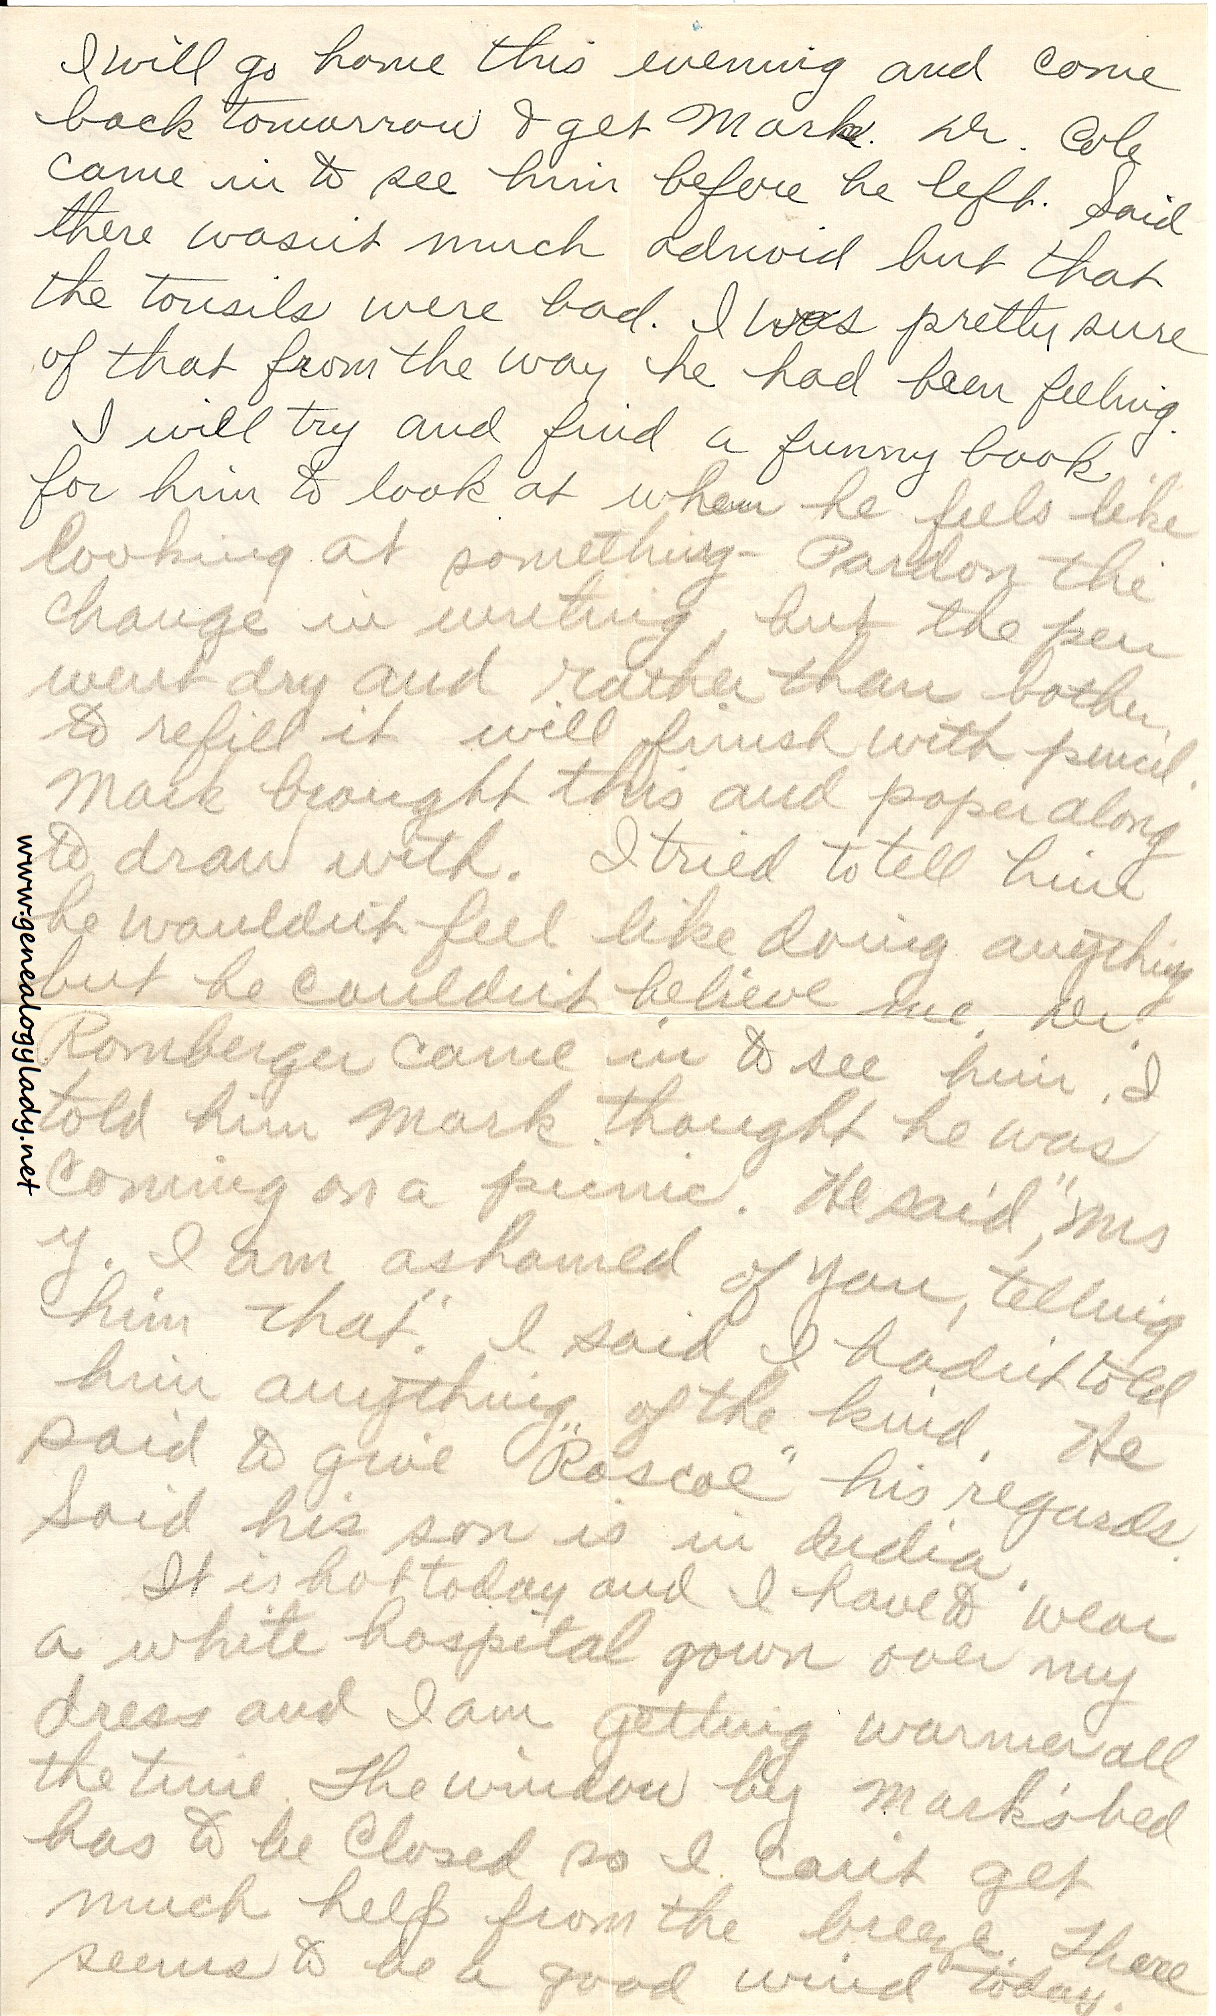 I will go home this evening and come
back tomorrow & get Mark. Dr. Cole
came in to see him before he left. Said
there wasn't much adnoid but that
the tonsils were bad. I was pretty sure
of that from the way he had been feeling.
I will try and find a funny book
for him to look at when he feels like
looking at something - Pardon the
change in writing, but the pen
went dry and rather than bother
to refill it will finish with pencil.
Mark brought this and paper along
to draw with. I tried to tell him
he wouldn't feel like doing anything
but he couldn't believe me. Dr.
Romberger came in to see him. I
told him Mark thought he was
coming on a picnic. He said, "Mrs
Y. I am ashamed of you, telling
him that." I said I hadn't told
him anything of the kind. He
said to give "Roscoe" his regards.
Said his son is in India.
It is hot today and I have to wear
a white hospital gown over my
dress and I am getting warmer all
the time. The window by Mark's bed
has to be closed so I can't get
much help from the breeze. There
seems to be a good wind today.
www.genealogylady.net